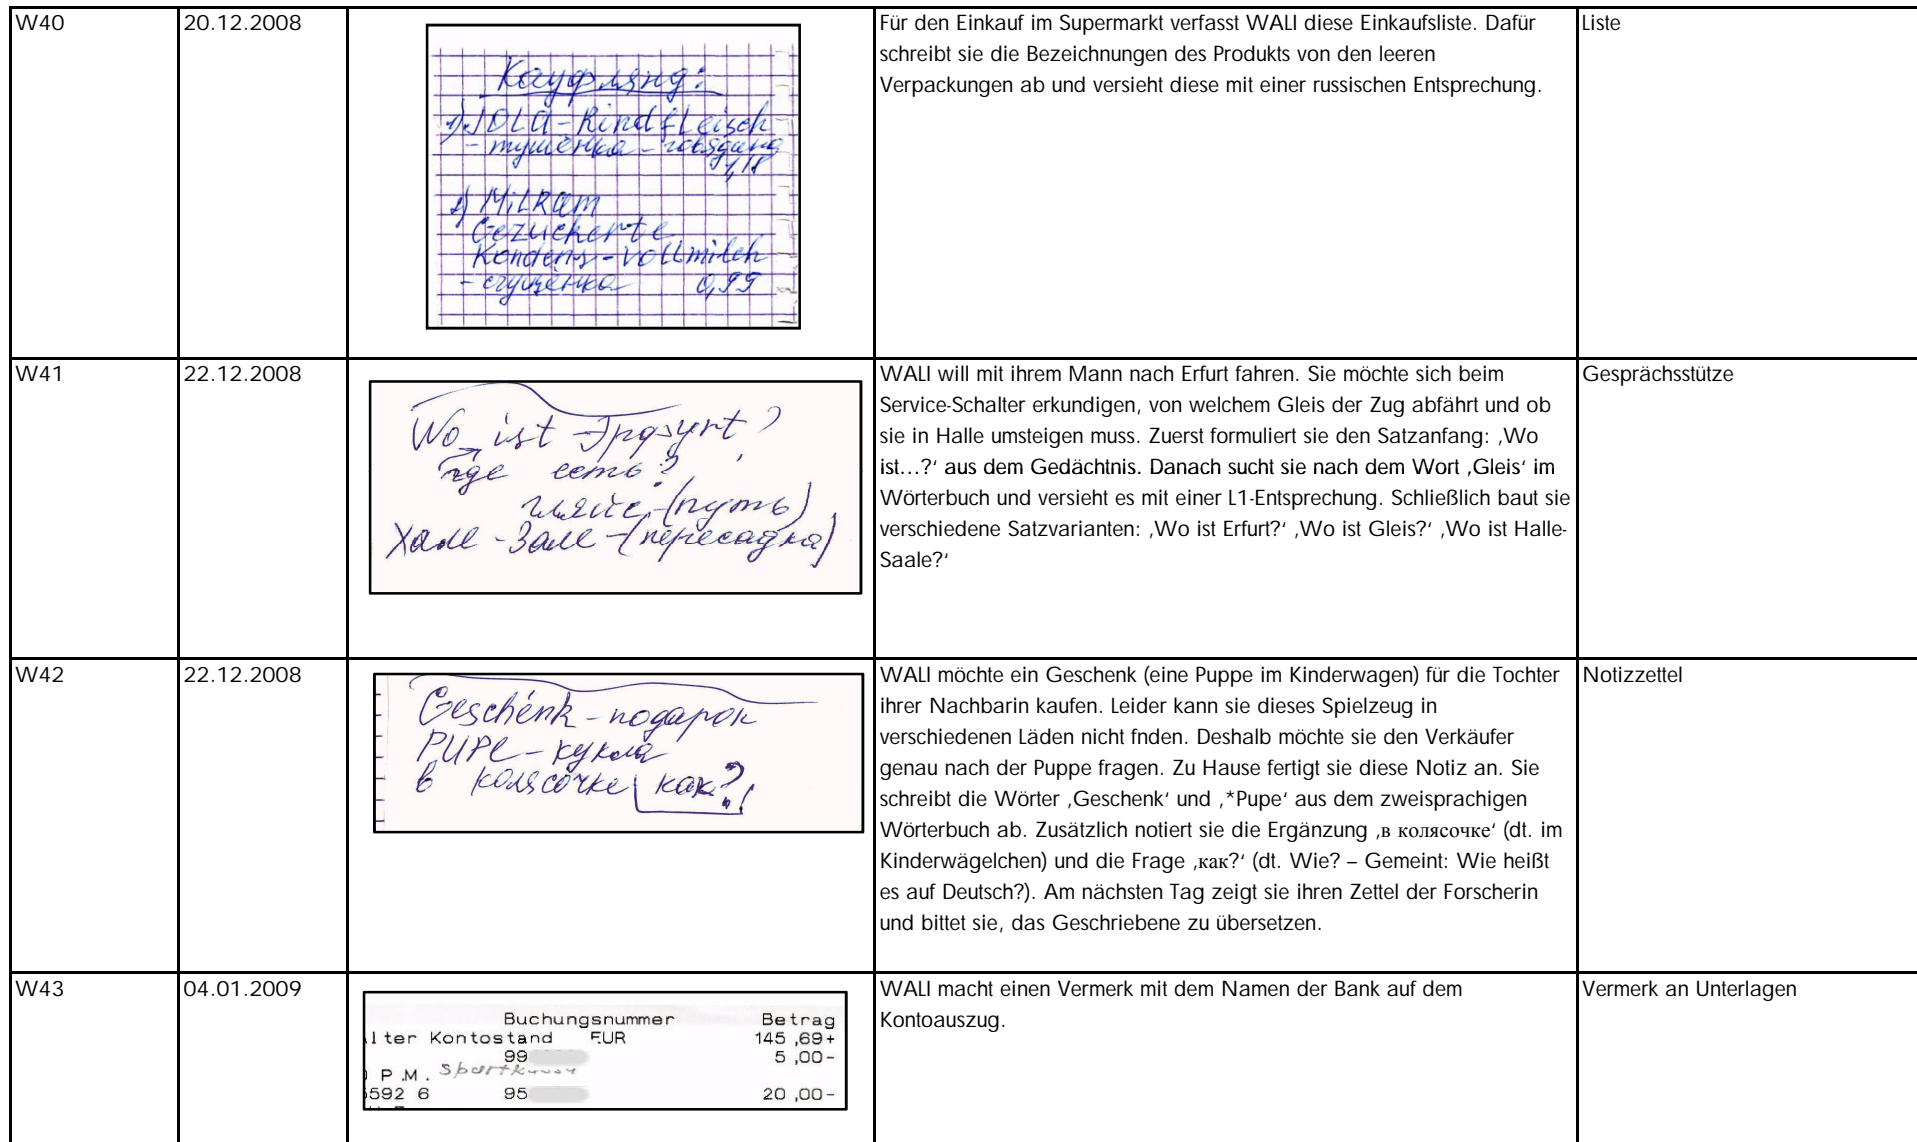 W40
20.12.2008
Кауфлянд:
1) JOLA-Rindfleisch
- тушёнка - говядина
1,18
2) MiLRam
Gezuckerte
Kondens-Vollmilch
- сгущёнка 0,99
Für den Einkauf im Supermarkt verfasst WALI diese Einkaufsliste. Dafür
schreibt sie die Bezeichnungen des Produkts von den leeren
Verpackungen ab und versieht diese mit einer russischen Entsprechung.
Liste
W41
22.12.2008
Wo ist Эрфурт?
где есть?
гляйс (путь)
Халле-Зале-(пересадка)
WALI will mit ihrem Mann nach Erfurt fahren. Sie möchte sich beim
Service-Schalter erkundigen, von welchem Gleis der Zug abfährt und ob
sie in Halle umsteigen muss. Zuerst formuliert sie den Satzanfang: ‚Wo
ist…?‘ aus dem Gedächtnis. Danach sucht sie nach dem Wort ‚Gleis‘ im
Wörterbuch und versieht es mit einer L1-Entsprechung. Schließlich baut sie
verschiedene Satzvarianten: ‚Wo ist Erfurt?‘ ‚Wo ist Gleis?‘ ‚Wo ist Halle-
Saale?‘
Gesprächsstütze
W42
22.12.2008
Geschenk - подарок
PUPE - кукла
в колясочке как?
WALI möchte ein Geschenk (eine Puppe im Kinderwagen) für die Tochter
ihrer Nachbarin kaufen. Leider kann sie dieses Spielzeug in
verschiedenen Läden nicht fnden. Deshalb möchte sie den Verkäufer
genau nach der Puppe fragen. Zu Hause fertigt sie diese Notiz an. Sie
schreibt die Wörter ‚Geschenk‘ und ‚*Pupe‘ aus dem zweisprachigen
Wörterbuch ab. Zusätzlich notiert sie die Ergänzung ‚в колясочке‘ (dt. im
Kinderwägelchen) und die Frage ‚как?‘ (dt. Wie? – Gemeint: Wie heißt
es auf Deutsch?). Am nächsten Tag zeigt sie ihren Zettel der Forscherin
und bittet sie, das Geschriebene zu übersetzen.
Notizzettel
W43
04.01.2009
Buchungsnummer Betrag
lter Kontostand EUR 145,69+
99 5,00-
P.M.
592 6 95 20,00-
WALI macht einen Vermerk mit dem Namen der Bank auf dem
Kontoauszug.
Vermerk an Unterlagen